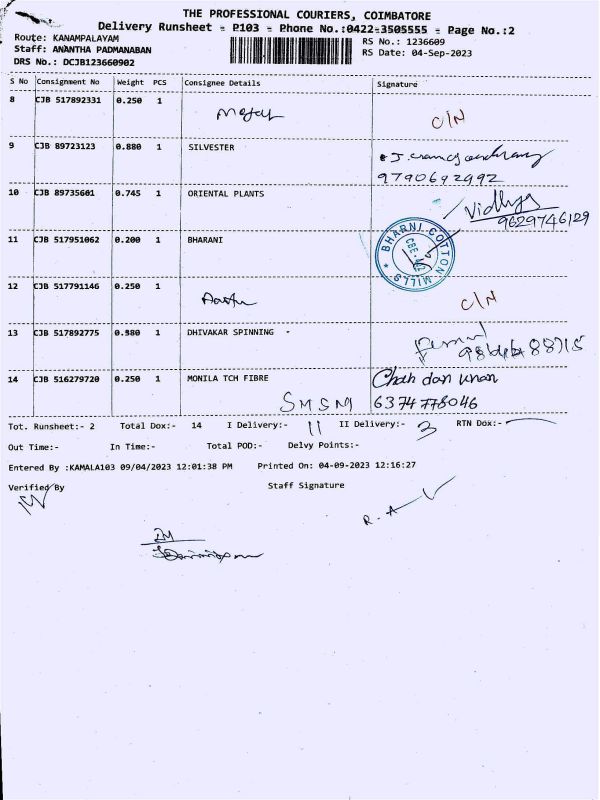 THE PROFESSIONAL COURIERS, COIMBATORE
Delivery Runsheet - P103 - Phone No.:0422-3505555 - Page No.:2
Route: KANAMPALAYAM
RS No.: 1236609
Staff: ANANTHA PADMANABAN
RS Date: 04-Sep-2023
DRS No.: DCJB123660902
S No Consignment No Weight PCS Consignee Details Signature
8 CJB 517892331 0.250 1
C/N
9 CJB 89723123 0.880 1 SILVESTER
9790692992
10 CJB 89735601 0.745 1 ORIENTAL PLANTS
Vidhya
9629746129
11 CJB 517951062 0.200 1 BHARANI
BHARNI COTTON MILLS
12 CJB 517791146 0.250 1
C/N
13 CJB 517892775 0.580 1 DHIVAKAR SPINNING -
14 CJB 516279720 0.250 1 MONILA TCH FIBRE
SMSM
6374778046
Tot. Runsheet:- 2 Total Dox:- 14 I Delivery:- 11 II Delivery:- 3 RTN Dox:-
Out Time:- In Time:- Total POD:- Delvy Points:-
Entered By :KAMALA103 09/04/2023 12:01:38 PM Printed On: 04-09-2023 12:16:27
Verified By Staff Signature